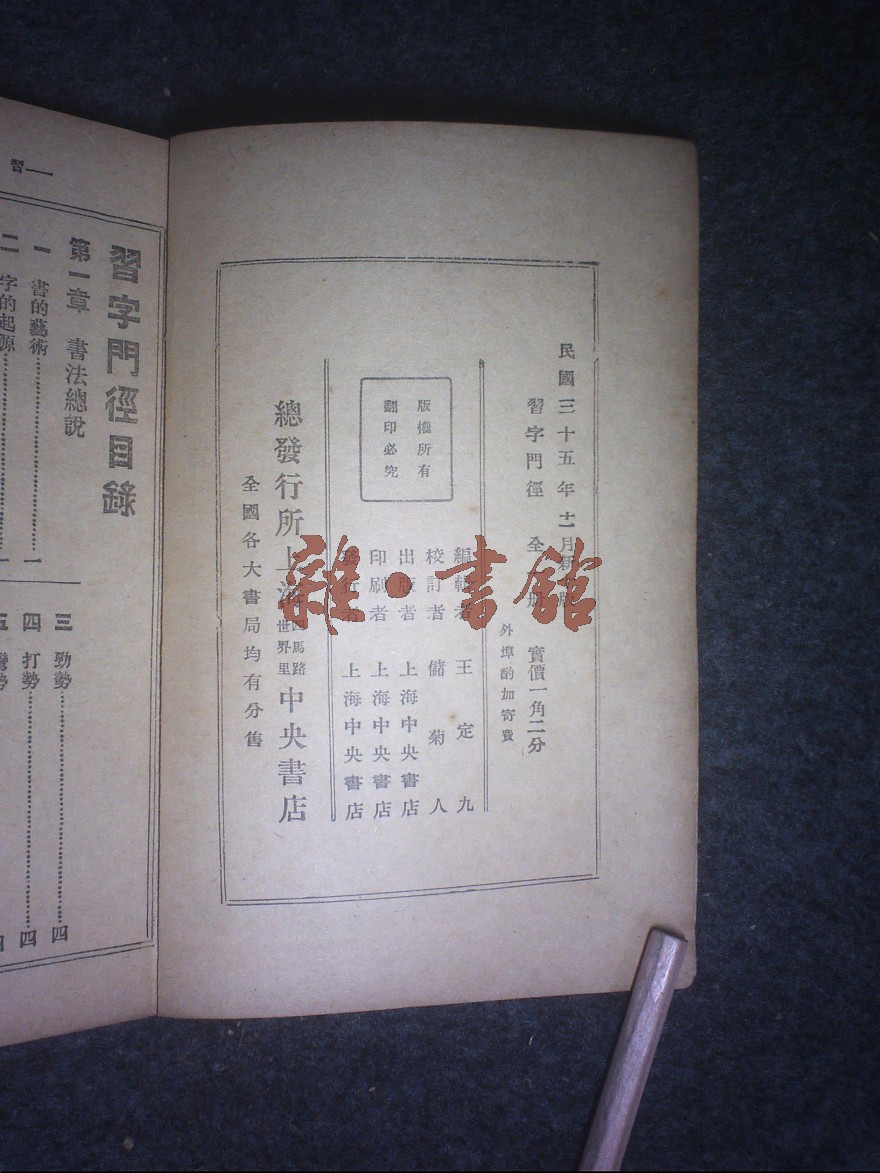 民國三十五年十一月新
習字門徑 全 冊 實價一角二分
外埠酌加寄費
編輯者 王定九
校訂者 儲菊人
出版者 上海中央書店
印刷者 上海中央書店
發行者 上海中央書店
版權所有
翻印必究
總發行所上海四馬路世界里中央書店
全國各大書局均有分售
雜·書館
習
習字門徑目錄
第一章 書法總說
一 書的藝術……一
二 字的起源……一
三 勁勢……四
四 打勢……四
五